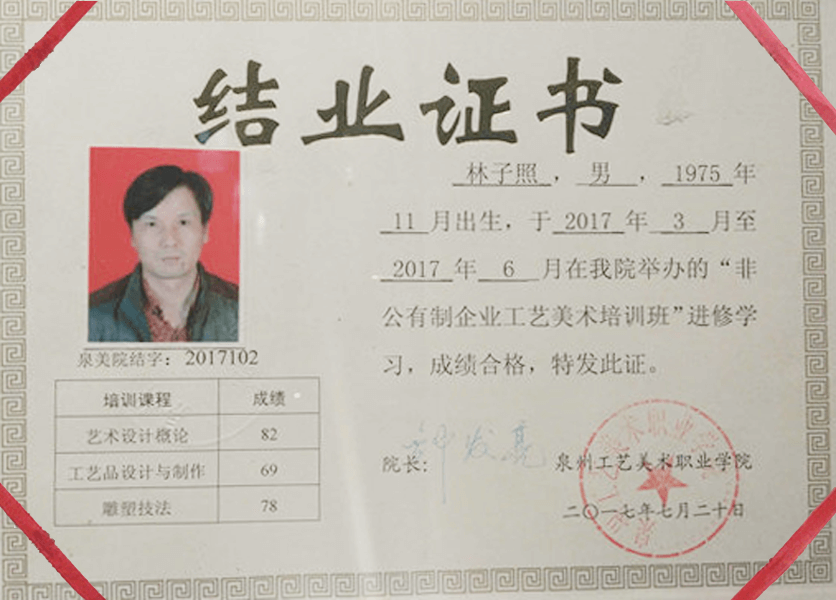 结业证书
林子照，男，1975年
11月出生，于2017年3月至
2017年6月在我院举办的“非
公有制企业工艺美术培训班”进修学
习，成绩合格，特发此证。
泉美院结字：2017102
培训课程 成绩
艺术设计概论 82
工艺品设计与制作 69
雕塑技法 78
院长：
泉州工艺美术职业学院
二〇一七年七月二十日